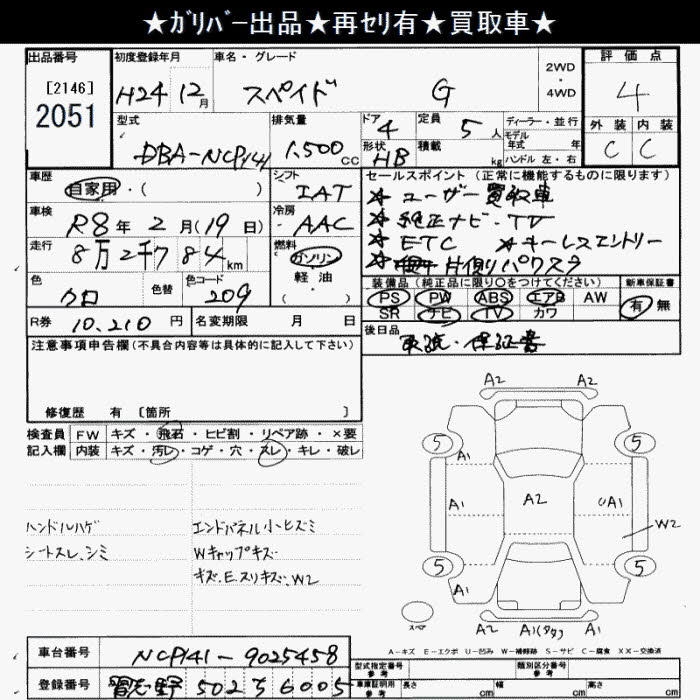 ★ｶﾞﾘﾊﾞｰ出品★再ｾﾘ有★買取車★
出品番号
[2146]
2051
初度登録年月
H24 12月
車名・グレード
スペイド G
2WD
・
4WD
評価点
4
外装 内装
C C
型式
DBA-NCP141
排気量
1,500cc
ドア
4
定員
5人
形状
HB
積載
kg
ディーラー・並行
モデル
年式 年
ハンドル 左・右
車歴
自家用・( )
シフト
IAT
車検
R8年 2月(19日)
冷房
AAC
走行
8万2千784km
燃料
ガソリン
軽・油
( )
色
クロ
色替
色コード
209
R券 10,210円
名変期限 月 日
セールスポイント (正常に機能するものに限ります)
★ユーザー買取車
★純正ナビ・TV
★ETC ★キーレスエントリー
★片側パワスラ
装備品(純正品に限り○をつけてください)
PS PW ABS エアB AW
SR ナビ TV カワ
新車保証書
有 無
後日品
取説・保証書
注意事項申告欄(不具合内容等は具体的に記入して下さい)
修復歴 有 〔箇所 〕
検査員 FW キズ・飛石・ヒビ割・リペア跡・×要
記入欄 内装 キズ・汚レ・コゲ・穴・スレ・キレ・破レ
ハンドルハゲ
シートスレ、シミ
エンドパネル小ヒズミ
Wキャップキズ
キズ、Eスリキズ、W2
A2 A2
5 5
A1
A1 A2 A1
W2
5 5
A1
スペア
A2 A1(タタ) A1
A-キズ E-エクボ U-凹み W-補修跡 S-サビ C-腐食 XX-交換済
車台番号 NCP141-9025458
登録番号 習志野 502 す 6005
型式指定番号
参考
類別区分番号
参考
車庫証明用
参考
長さ cm
幅 cm
高さ cm